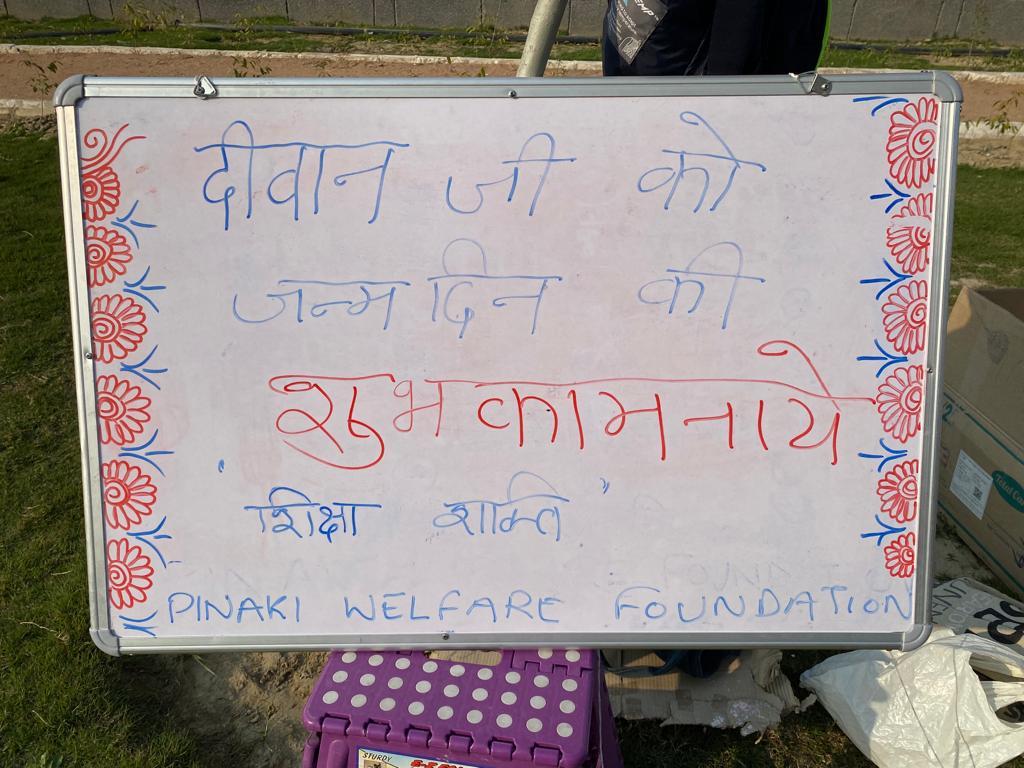 दीवान जी को
जन्मदिन की
शुभकामनाये
' शिक्षा शान्ति '
PINAKI WELFARE FOUNDATION
STURDY